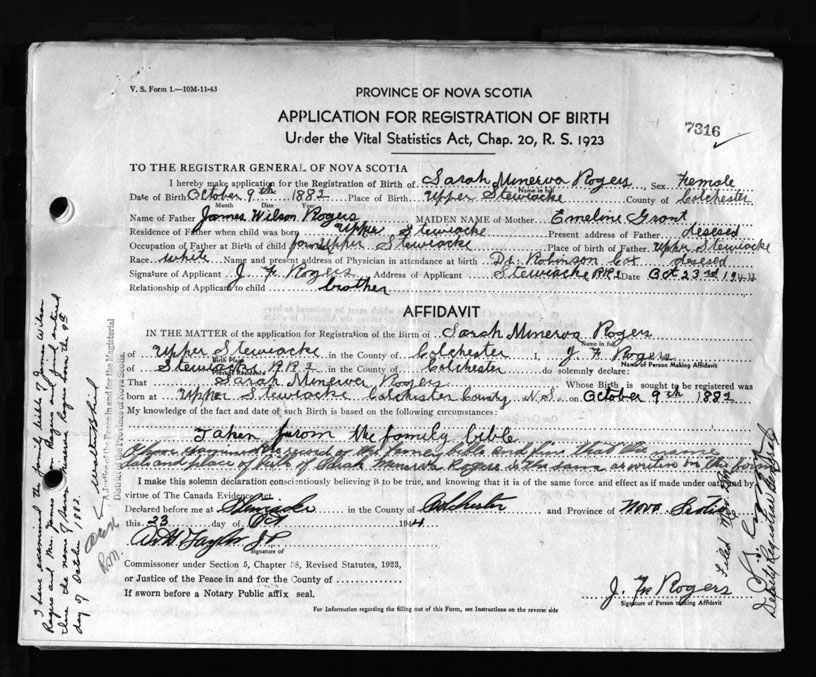 V. S. Form 1.—10M-11-43
PROVINCE OF NOVA SCOTIA
APPLICATION FOR REGISTRATION OF BIRTH
Under the Vital Statistics Act, Chap. 20, R. S. 1923
7316
TO THE REGISTRAR GENERAL OF NOVA SCOTIA
I hereby make application for the Registration of Birth of Sarah Minerva Rogers Sex Female
Name in full
Date of Birth October 9th 1882 Place of Birth Upper Stewiacke County of Colchester
Month Date Year
Name of Father James Wilson Rogers MAIDEN NAME of Mother Emeline Grant
Residence of Father when child was born Upper Stewiacke Present address of Father desesed
Occupation of Father at Birth of child Upper Stewiacke Place of birth of Father Upper Stewiacke
Race white Name and present address of Physician in attendance at birth Dr. Robinson Cox desesed
Signature of Applicant J. F. Rogers Address of Applicant Stewiacke RR2 Date Oct 23rd 1944
Relationship of Applicant to child brother
AFFIDAVIT
IN THE MATTER of the application for Registration of the Birth of Sarah Minerva Rogers
Name in full
of Upper Stewiacke in the County of Colchester I, J. F. Rogers
Birth Place Name of Person Making Affidavit
of Stewiacke RR2 in the County of Colchester do solemnly declare:
Present Residence
That Sarah Minerva Rogers Whose Birth is sought to be registered was
born at Upper Stewiacke Colchester County N.S. on October 9th 1882
My knowledge of the fact and date of such Birth is based on the following circumstances:
Taken from the family bible
I have examined the record of the family bible and find that the name
date and place of birth of Sarah Minerva Rogers is the same as written on this form
I make this solemn declaration conscientiously believing it to be true, and knowing that it is of the same force and effect as if made under oath and by
virtue of The Canada Evidence Act.
Declared before me at Stewiacke in the County of Colchester and Province of Nova Scotia
this 23 day of Oct 1944
W. H. Taylor J.P.
Signature of
Commissioner under Section 5, Chapter 38, Revised Statutes, 1923,
or Justice of the Peace in and for the County of
If sworn before a Notary Public affix seal.
J. F. Rogers
Signature of Person making Affidavit
For Information regarding the filling out of this Form, see Instructions on the reverse side
I have examined the family bible of James Wilson
Rogers and Mrs. James Rogers and find entered
there the name of Sarah Minerva Rogers born the 9th
day of October 1882.
A Justice of the Peace in and for the Magisterial
District of the Province of Nova Scotia.
Filed
Deputy Registrar General